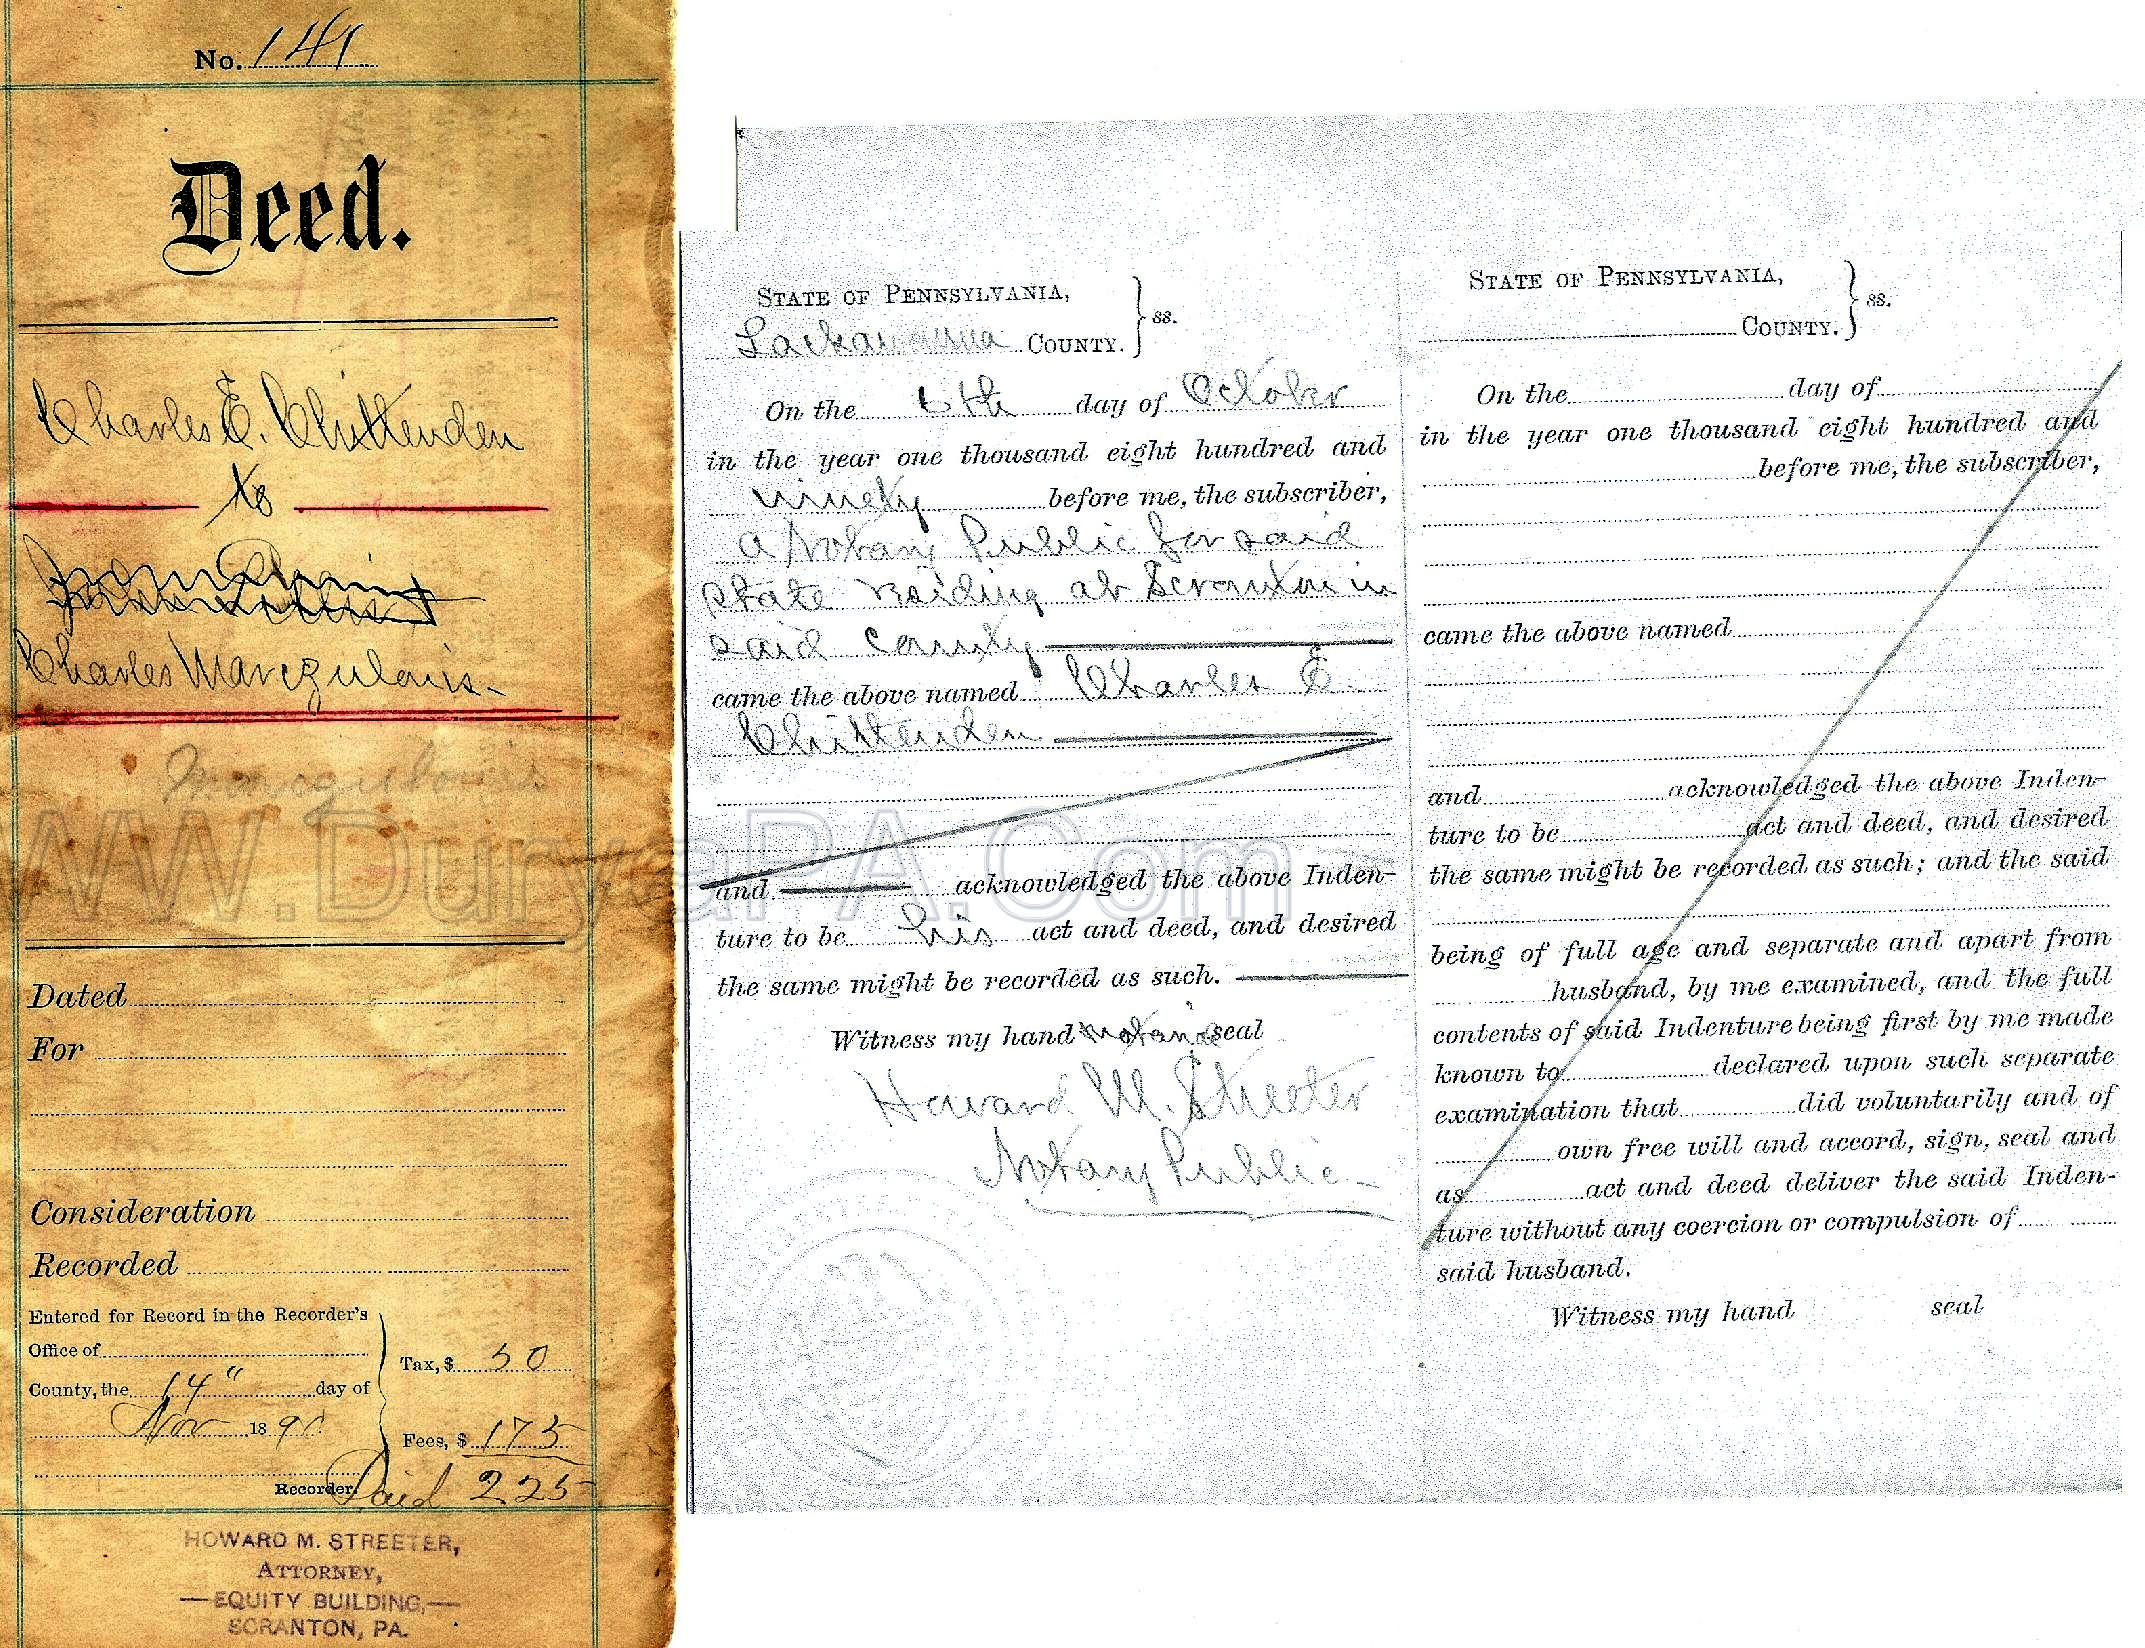 No. 141
Deed.
Charles E. Chittenden
to
Charles Marcgularis.
WW.DuryeaPA.Com
Dated
For
Consideration
Recorded
Entered for Record in the Recorder's
Office of
County, the 14" day of
Nov 1890
Recorder.
Tax, $ 50
Fees, $ 175
Paid 225
HOWARD M. STREETER,
ATTORNEY,
—EQUITY BUILDING,—
SCRANTON, PA.
STATE OF PENNSYLVANIA,
Lackawanna COUNTY. } ss.
On the 6th day of October
in the year one thousand eight hundred and
ninety before me, the subscriber,
a Notary Public for said
State residing at Scranton in
said County
came the above named Charles E.
Chittenden
and acknowledged the above Inden-
ture to be his act and deed, and desired
the same might be recorded as such.
Witness my hand & notarial seal
Howard M. Streeter
Notary Public
STATE OF PENNSYLVANIA,
COUNTY. } ss.
On the day of
in the year one thousand eight hundred and
before me, the subscriber,
came the above named
and acknowledged the above Inden-
ture to be act and deed, and desired
the same might be recorded as such; and the said
being of full age and separate and apart from
husband, by me examined, and the full
contents of said Indenture being first by me made
known to declared upon such separate
examination that did voluntarily and of
own free will and accord, sign, seal and
as act and deed deliver the said Inden-
ture without any coercion or compulsion of
said husband.
Witness my hand seal